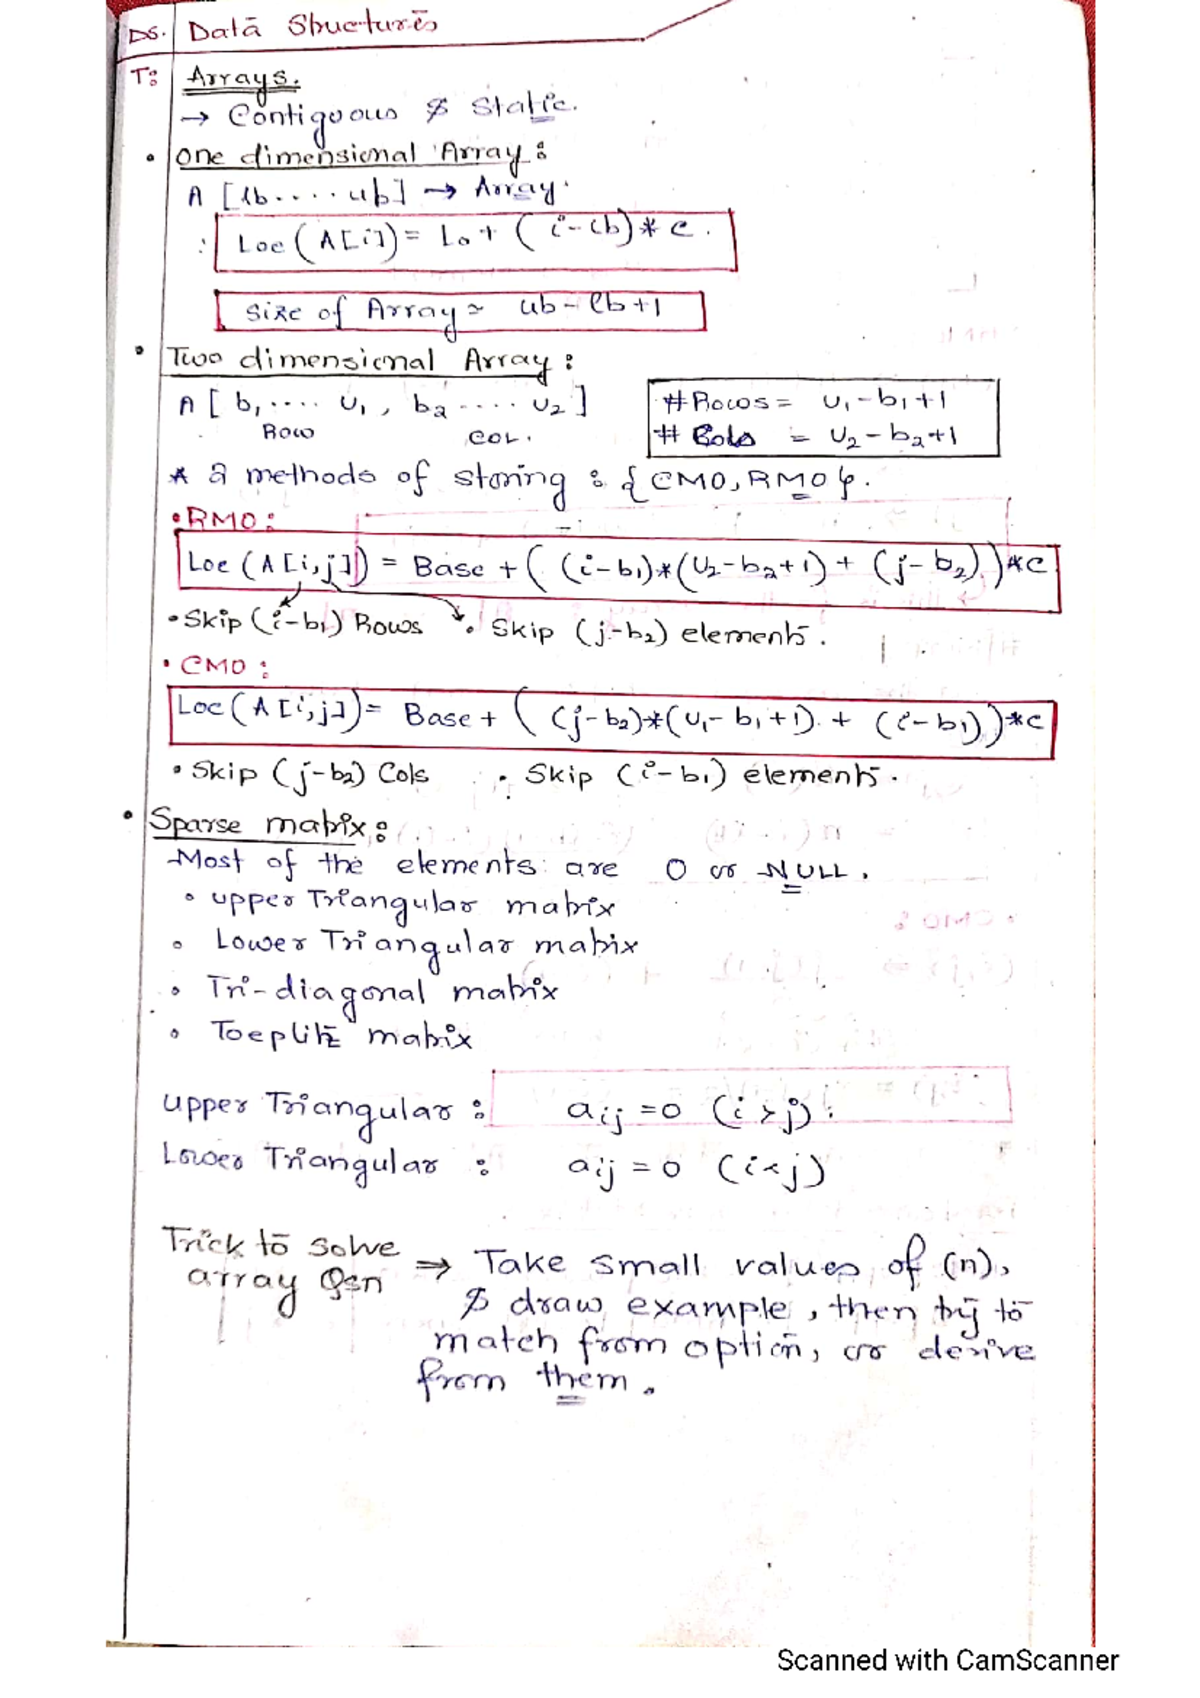 DS. Data Structures
T: Arrays.
→ Contiguous & Static.
• One dimensional Array:
A [lb.....ub] → Array.
∴ Loc (A[i]) = L₀ + (i-lb)*c.
Size of Array = ub-lb+1
• Two dimensional Array:
A [ b₁.... U₁, b₂ .... U₂ ]
Row COL.
#Rows = U₁-b₁+1
# Cols = U₂-b₂+1
* 2 methods of storing : {CMO, RMO}.
• RMO:
Loc (A[i,j]) = Base + ( (i-b₁)*(U₂-b₂+1) + (j-b₂) )*c
• Skip (i-b₁) Rows • Skip (j-b₂) elements.
• CMO:
Loc (A[i,j]) = Base + ( (j-b₂)*(U₁-b₁+1) + (i-b₁) )*c
• Skip (j-b₂) Cols • Skip (i-b₁) elements.
• Sparse matrix:
Most of the elements are 0 or NULL.
• upper Triangular matrix
• Lower Triangular matrix
• Tri-diagonal matrix
• Toeplitz matrix
upper Triangular : aij = 0 (i > j).
Lower Triangular : aij = 0 (i < j)
Trick to solve array Qsn ⇒ Take small values of (n),
& draw example, then try to
match from option, or derive
from them.
Scanned with CamScanner